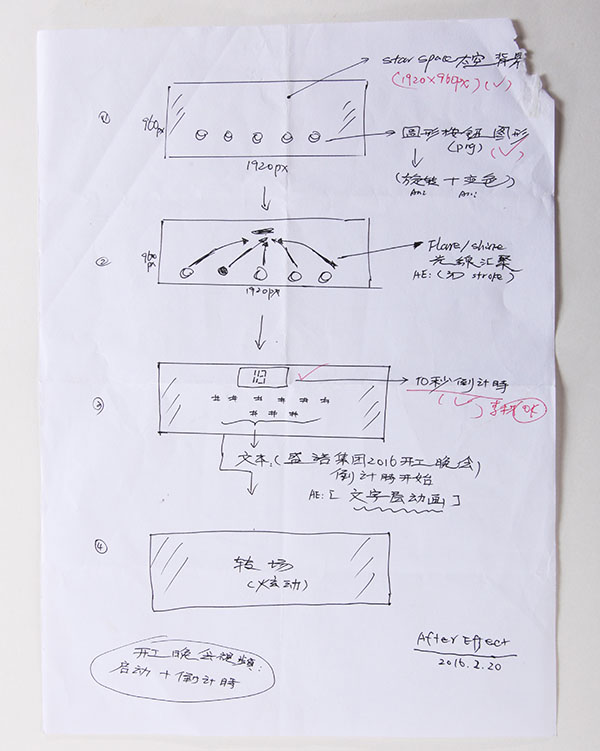 star space 太空 背景
(1920×960px) (✓)
①
960px
圆形按钮 图形
(png) ✓
1920px
(旋转 + 变色)
Ani Ani
②
960
px
Flare/shine
光线汇聚
AE: (3D stroke)
1920px
③
10
10秒倒计時
(✓) OK
文本:(盛诺集团2016开工晚会)
倒计時开始
AE: [文字层动画]
④
转场
(炫动)
After Effect
2016.2.20
开工晚会视频:
启动 + 倒计時